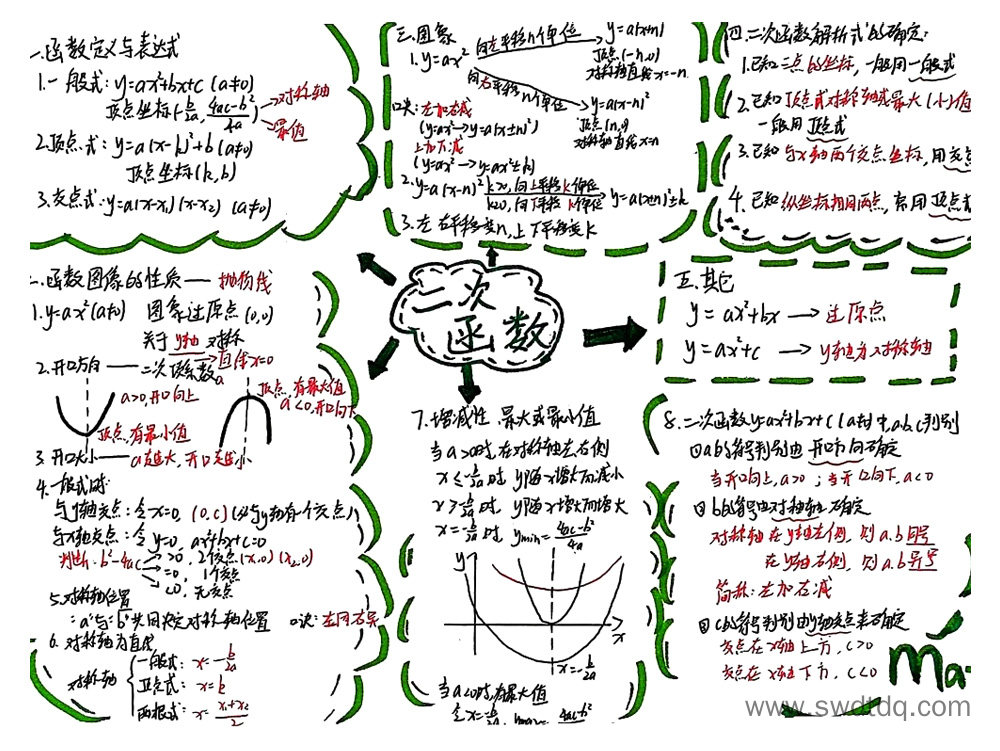 一.函数定义与表达式
1.一般式: y=ax²+bx+c (a≠0)
顶点坐标(-b/2a, 4ac-b²/4a) →对称轴
→最值
2.顶点式: y=a(x-k)²+b (a≠0)
顶点坐标(k,b)
3.交点式: y=a(x-x₁)(x-x₂) (a≠0)
三.图象
1.y=ax² 向左平移n个单位 y=a(x+n)²
顶点(-n,0)
对称轴直线x=-n
向右平移n个单位 y=a(x-n)²
顶点(n,0)
对称轴直线x=n
口诀:左加右减
(y=ax²→y=a(x±n)²)
上加下减
(y=ax²→y=ax²±k)
2.y=a(x-n)² k>0,向上平移k个单位
k<0,向下平移k个单位 y=a(x±n)²±k
3.左右平移变n,上下平移变k
四.二次函数解析式的确定:
1.已知三点的坐标,一般用一般式
2.已知顶点或对称轴或最大(小)值
一般用顶点式
3.已知与x轴两个交点坐标,用交点
4.已知纵坐标相同两点,常用顶点式
二次
函数
二.函数图像的性质——抛物线
1.y=ax²(a≠0) 图象过原点(0,0)
关于y轴对称
→直线x=0
2.开口方向——二次项系数a
a>0,开口向上
顶点,有最小值
顶点,有最大值
a<0,开口向下
3.开口大小——a越大,开口越小
4.一般式时
与y轴交点:令x=0, (0,c)(必与y轴有1个交点)
与x轴交点:令y=0, ax²+bx+c=0
判断:b²-4ac >0, 2个交点(x₁,0)(x₂,0)
=0, 1个交点
<0, 无交点
5.对称轴位置
:"a"与"b"共同决定对称轴位置 口诀:左同右异
6.对称轴为直线
对称轴
一般式: x=-b/2a
顶点式: x=k
两根式: x=x₁+x₂/2
7.增减性,最大或最小值
当a>0时,在对称轴左右侧
x≤-b/2a时 y随x增大而减小
x>-b/2a时, y随x增大而增大
x=-b/2a时 ymin=4ac-b²/4a
y
x
x=-b/2a
当a<0时,有最大值
令x=-b/2a, ymax=4ac-b²
五.其它
y=ax²+bx→过原点
y=ax²+c→y轴为对称轴
8.二次函数y=ax²+bx+c(a≠0)中,a,b,c判别
①a的符号判别由开口方向确定
当开口向上,a>0;当开口向下,a<0
②b的符号由对称轴确定
对称轴在y轴左侧,则a.b同号
在y轴右侧,则a.b异号
简称:左加右减
③c的符号判别由与y轴交点来确定
交点在x轴上方,c>0
交点在x轴下方,c<0
Ma
www.swdtdq.com